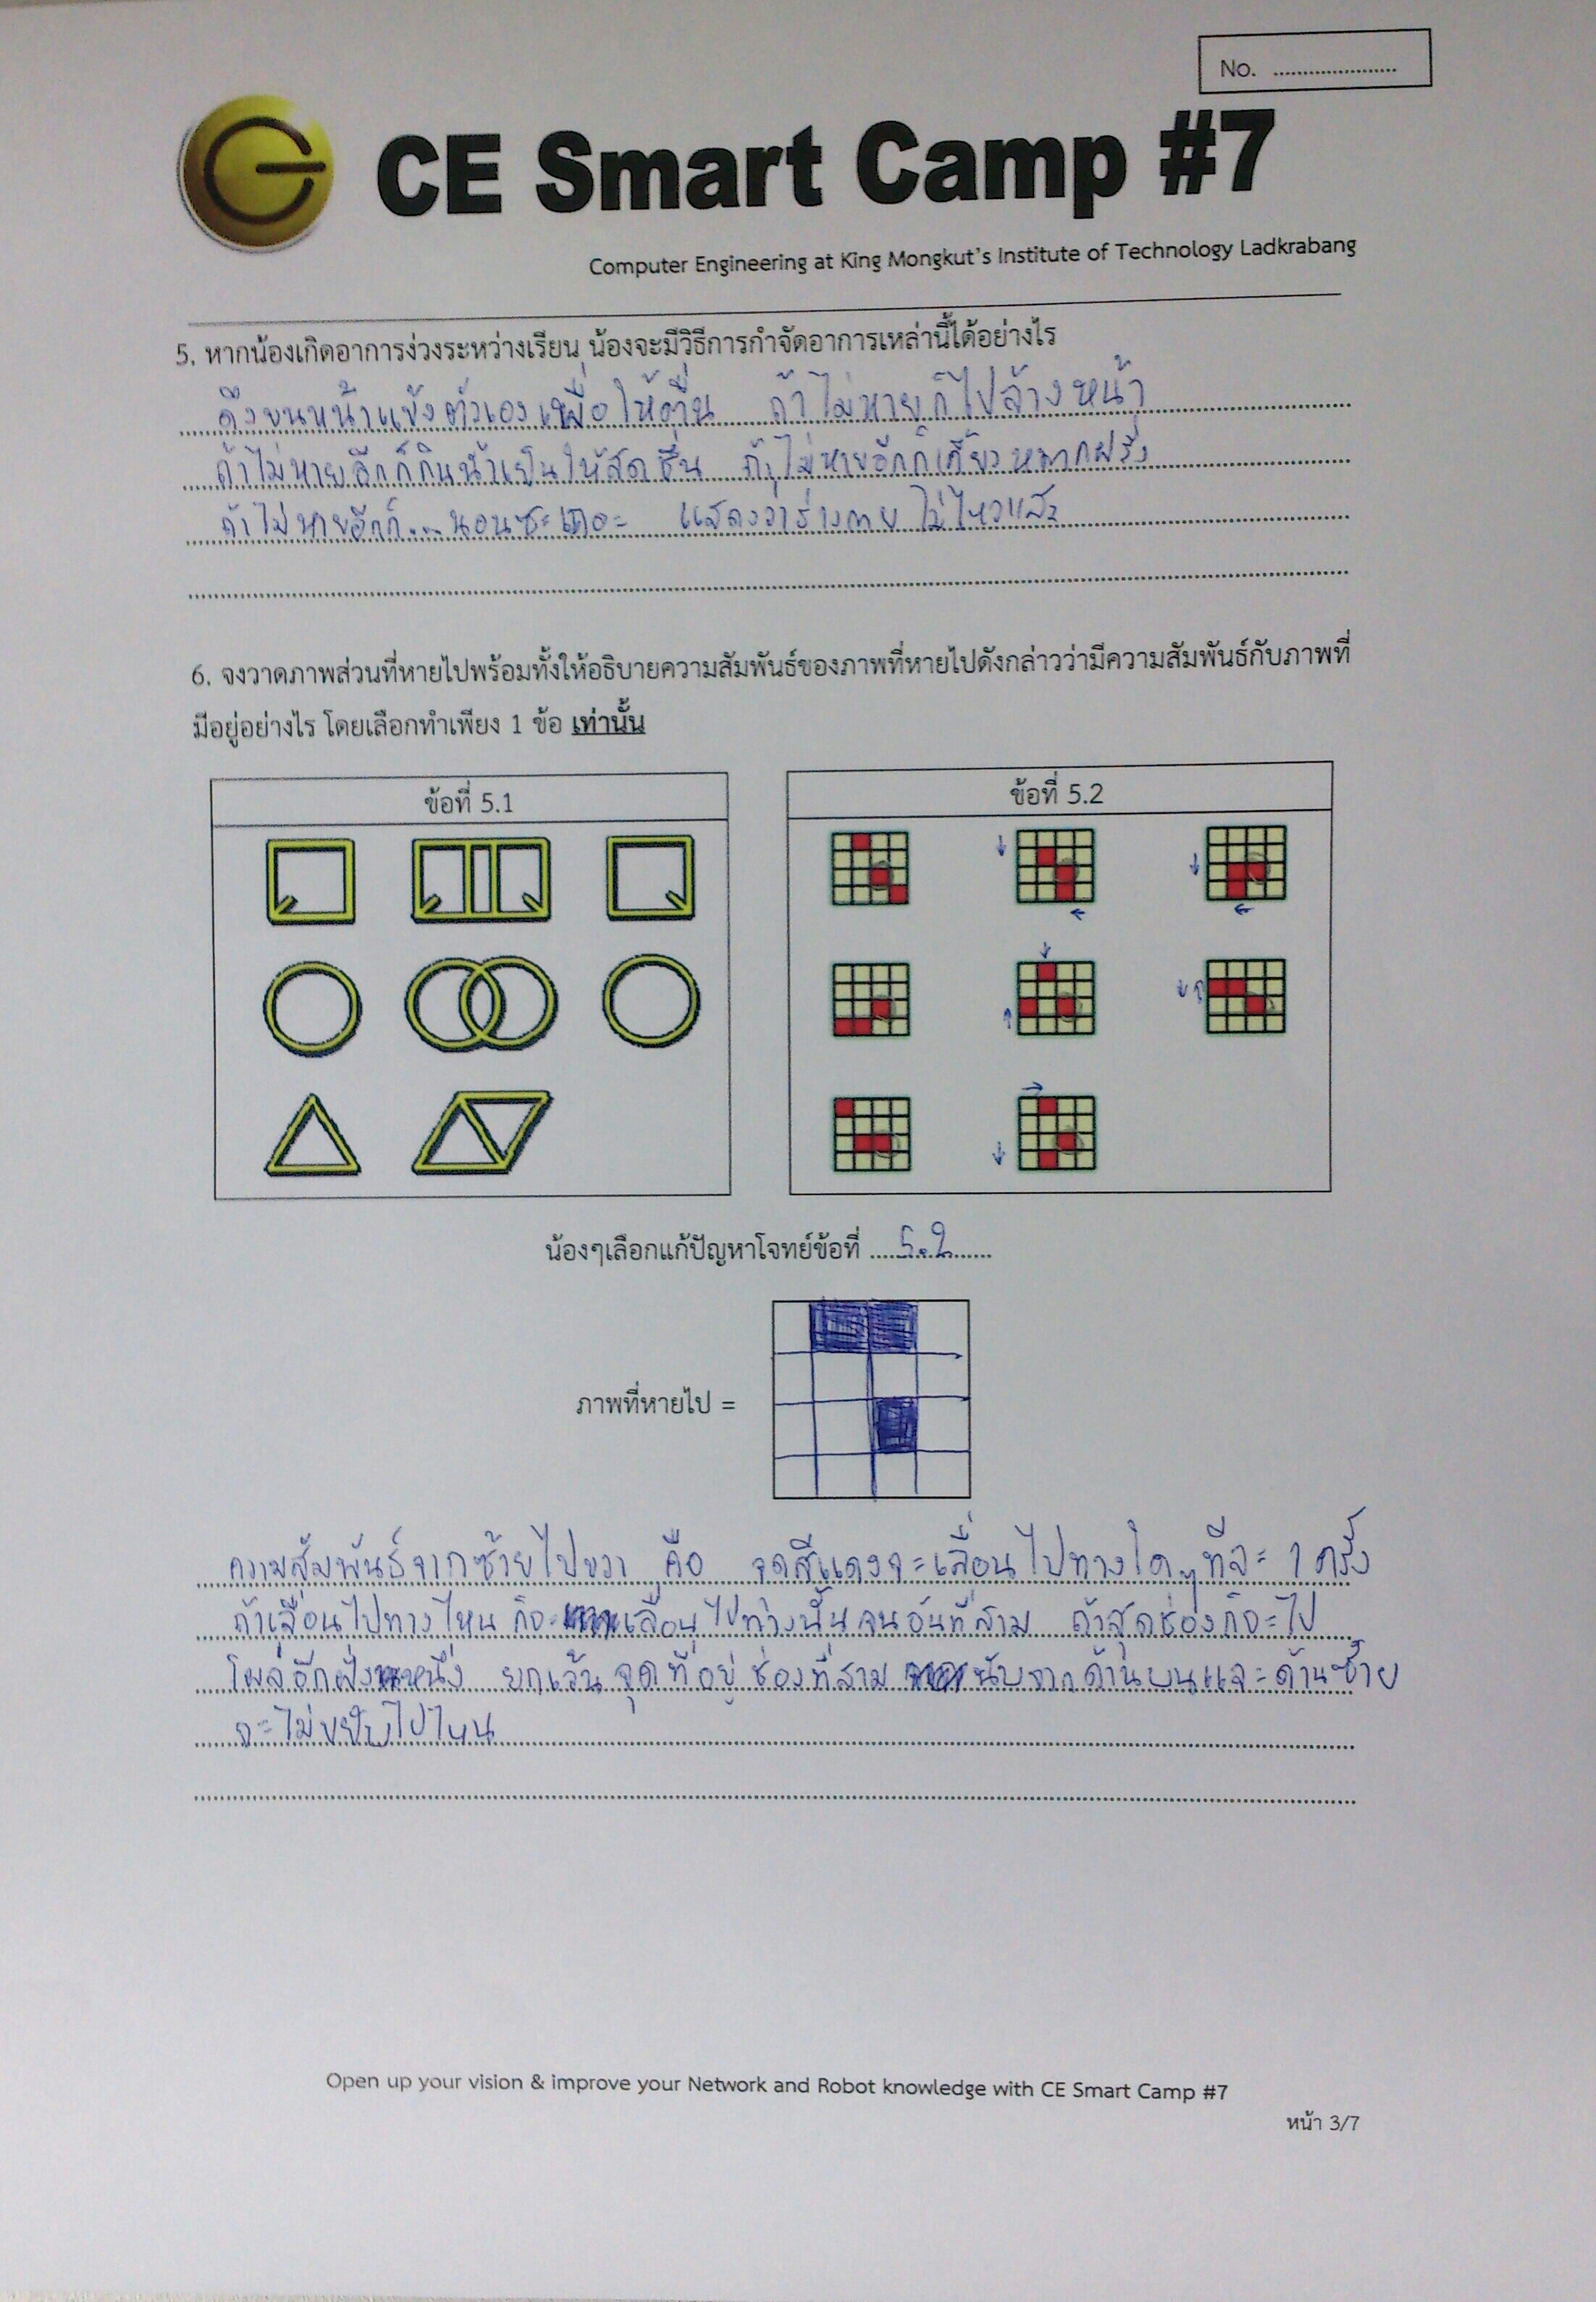 No. ......................
CE Smart Camp #7
Computer Engineering at King Mongkut's Institute of Technology Ladkrabang
5. หากน้องเกิดอาการง่วงระหว่างเรียน น้องจะมีวิธีการกำจัดอาการเหล่านี้ได้อย่างไร
ดึงขนหน้าแข้งตัวเองเพื่อให้ตื่น ถ้าไม่หายก็ไปล้างหน้า
ถ้าไม่หายอีกก็กินน้ำเย็นให้สดชื่น ถ้าไม่หายอีกก็เคี้ยวหมากฝรั่ง
ถ้าไม่หายอีกก็... นอนซะเถอะ แสดงว่าร่างกายไม่ไหวแล้ว
6. จงวาดภาพส่วนที่หายไปพร้อมทั้งให้อธิบายความสัมพันธ์ของภาพที่หายไปดังกล่าวว่ามีความสัมพันธ์กับภาพที่
มีอยู่อย่างไร โดยเลือกทำเพียง 1 ข้อ เท่านั้น
ข้อที่ 5.1
ข้อที่ 5.2
น้องๆเลือกแก้ปัญหาโจทย์ข้อที่ 5.2
ภาพที่หายไป =
ความสัมพันธ์จากซ้ายไปขวา คือ จุดสีแดงจะเลื่อนไปทางใดๆ ทีละ 1 ครั้ง
ถ้าเลื่อนไปทางไหน ก็จะเลื่อนไปทางนั้นจนอันที่สาม ถ้าสุดช่องก็จะไป
โผล่อีกฝั่งหนึ่ง ยกเว้น จุดที่อยู่ช่องที่สาม นับจากด้านบนและด้านซ้าย
จะไม่ขยับไปไหน
Open up your vision & improve your Network and Robot knowledge with CE Smart Camp #7
หน้า 3/7